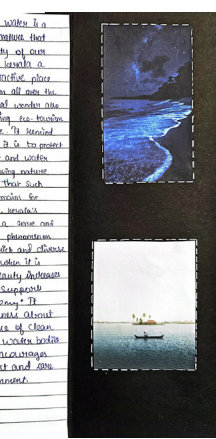 Water is a
that
ty of our
kerala a
ractive place
m all over the
al wonder also
ing eco-tourism
e. It remind
it is to protect
and water
wing nature.
that such
mains for
kerala's
a rare and
phenomenon
rich and diverse
when it is
eauty increases
Support
omy. It
ness about
ce of clean
water bodies
ncourages
ct and care
nment.